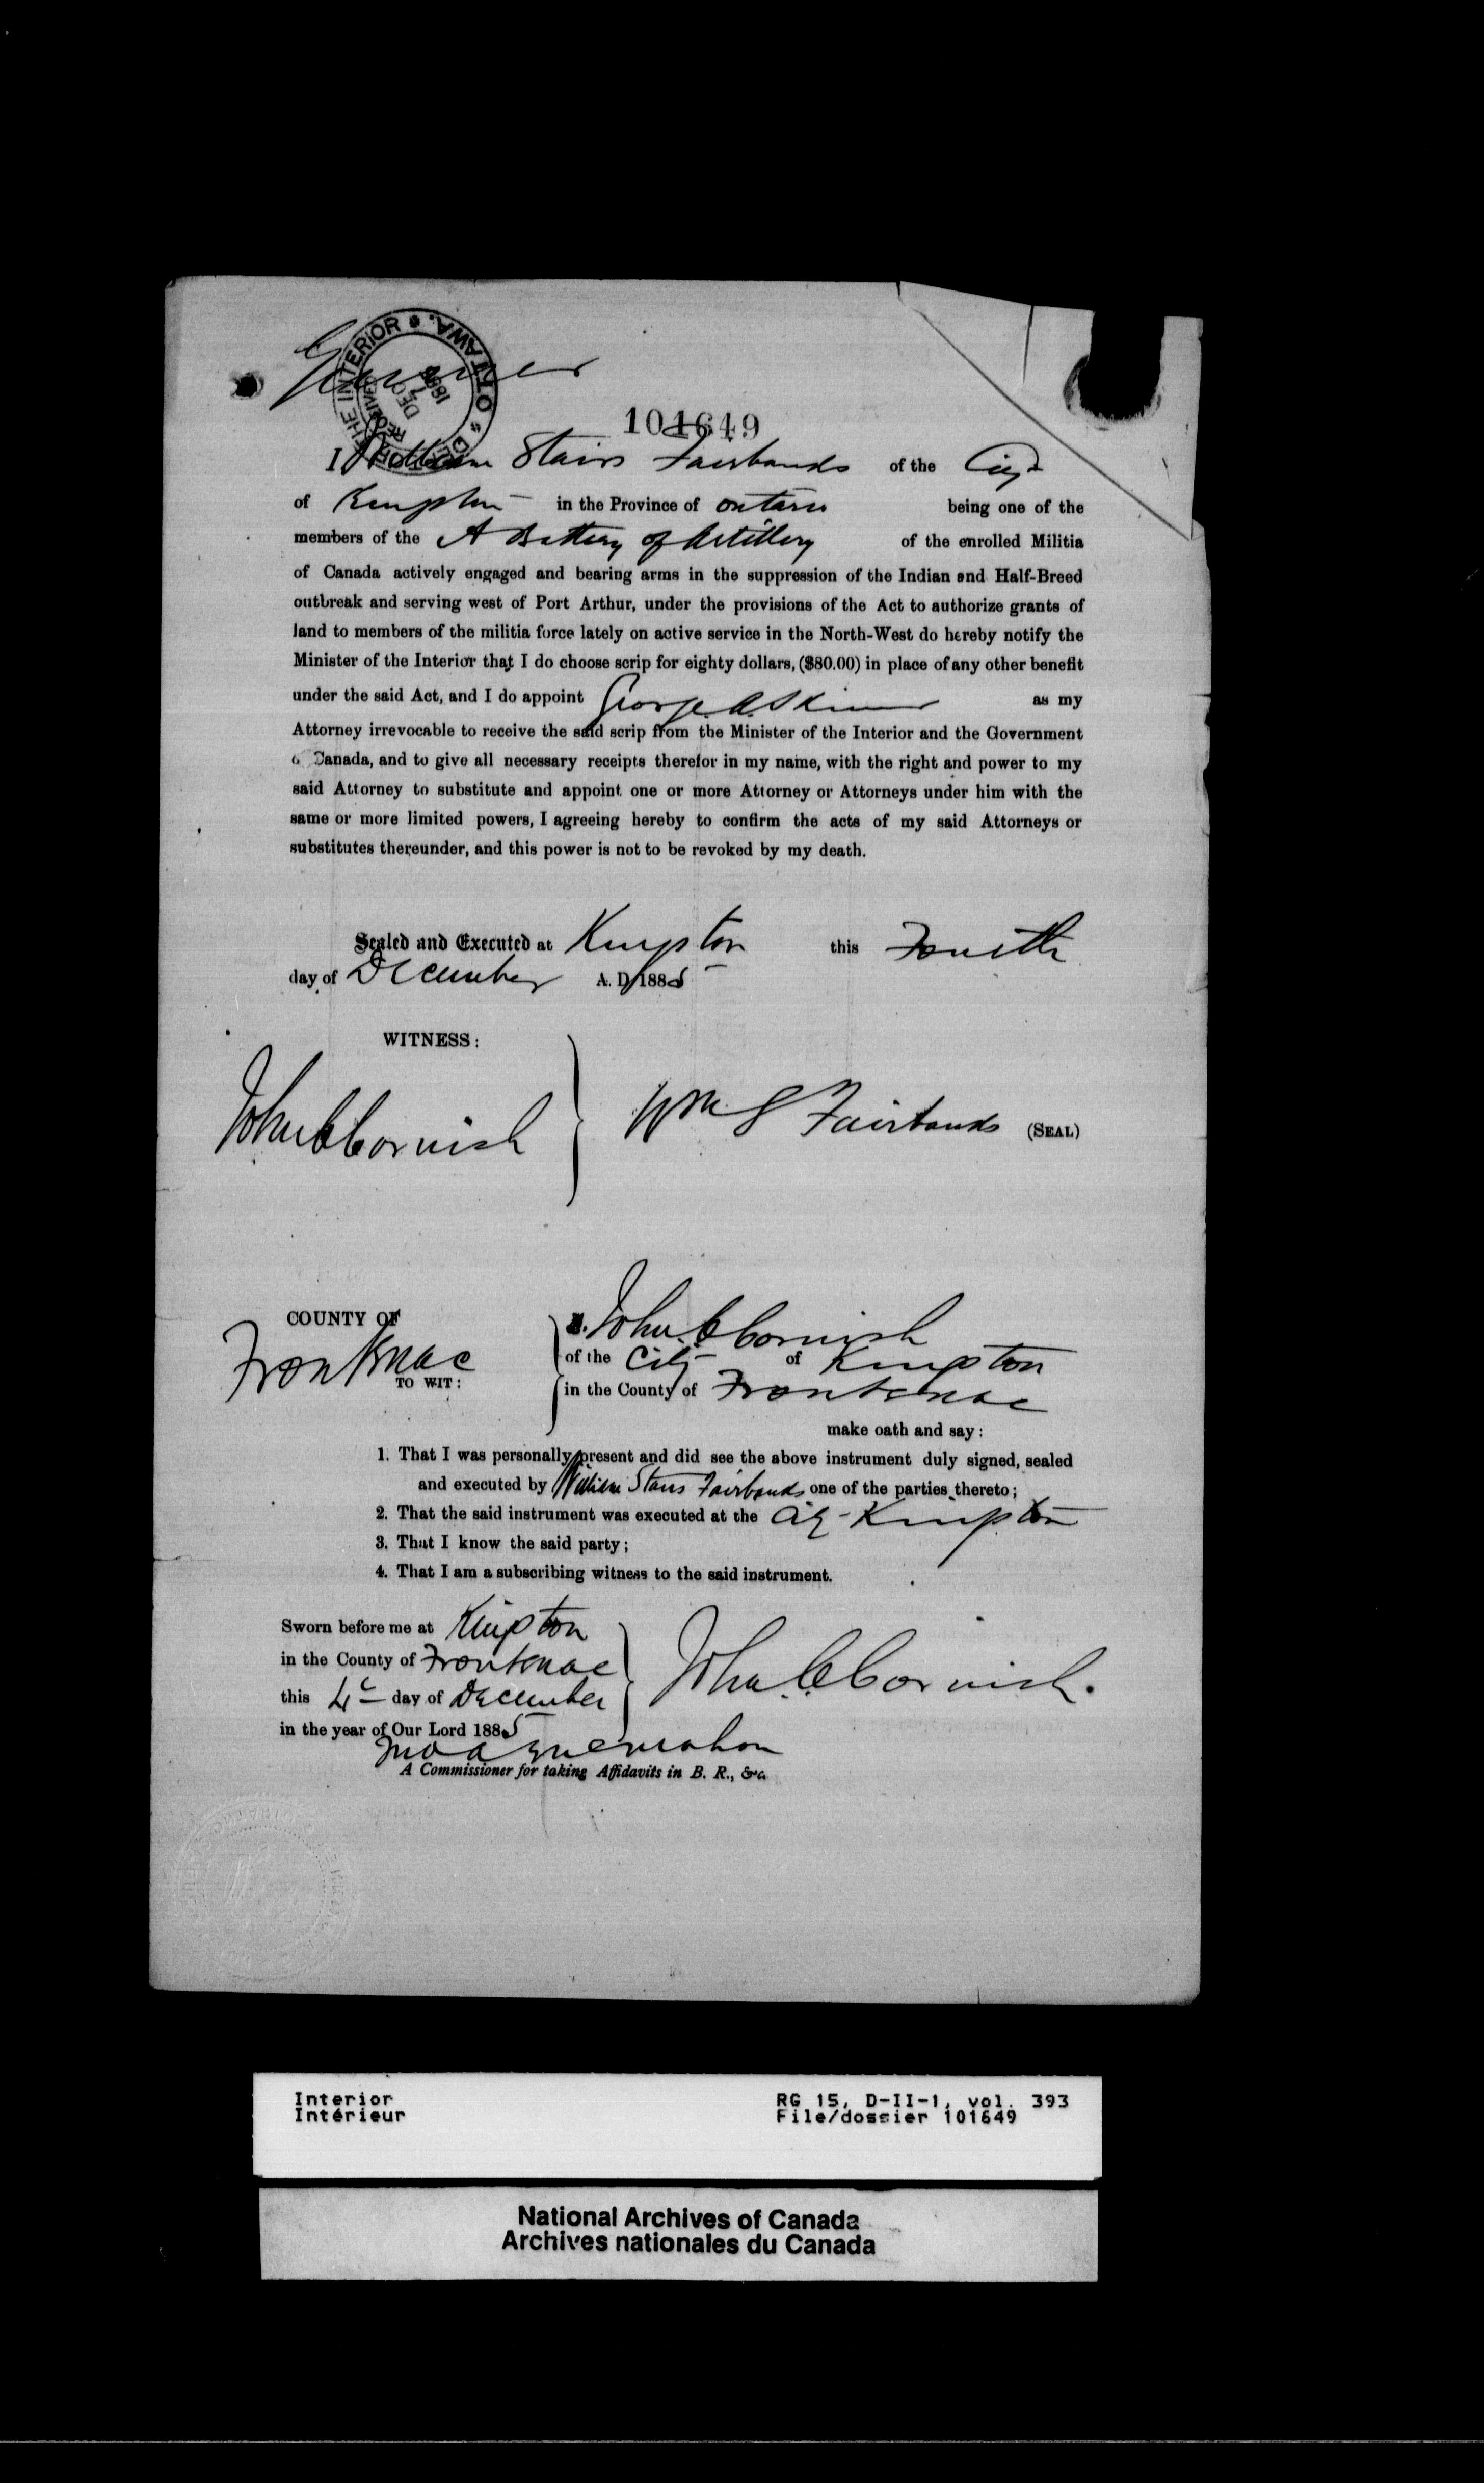 Gunner
DEPT OF THE INTERIOR * OTTAWA.
RECEIVED
DEC 7
1885
101649
I William Stairs Fairbanks of the City
of Kingston in the Province of Ontario being one of the
members of the A Battery of Artillery of the enrolled Militia
of Canada actively engaged and bearing arms in the suppression of the Indian and Half-Breed
outbreak and serving west of Port Arthur, under the provisions of the Act to authorize grants of
land to members of the militia force lately on active service in the North-West do hereby notify the
Minister of the Interior that I do choose scrip for eighty dollars, ($80.00) in place of any other benefit
under the said Act, and I do appoint George. A. Skinner as my
Attorney irrevocable to receive the said scrip from the Minister of the Interior and the Government
o Canada, and to give all necessary receipts therefor in my name, with the right and power to my
said Attorney to substitute and appoint one or more Attorney or Attorneys under him with the
same or more limited powers, I agreeing hereby to confirm the acts of my said Attorneys or
substitutes thereunder, and this power is not to be revoked by my death.
Sealed and Executed at Kingston this Fourth
day of December A. D. 1885
WITNESS:
John C Cornish Wm S Fairbanks (SEAL)
COUNTY OF
Frontenac
TO WIT:
I. John C Cornish
of the City of Kingston
in the County of Frontenac
make oath and say:
1. That I was personally present and did see the above instrument duly signed, sealed
and executed by William Stairs Fairbanks one of the parties thereto;
2. That the said instrument was executed at the City Kingston
3. That I know the said party;
4. That I am a subscribing witness to the said instrument.
Sworn before me at Kingston
in the County of Frontenac
this 4th day of December
in the year of Our Lord 1885
John C Cornish.
A Commissioner for taking Affidavits in B. R., &c.
Interior
Intérieur
RG 15, D-II-1, vol. 393
File/dossier 101649
National Archives of Canada
Archives nationales du Canada